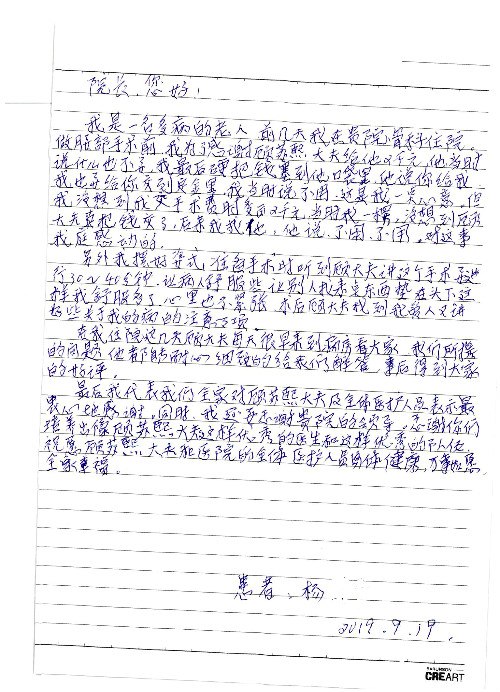 院长,您好!
我是一名多病的老人,前几天我在贵院骨科住院。
做肩部手术前,我为了感谢顾苏熙大夫给他2千元,他当时
说什么也不要,我最后硬把钱塞到他口袋里,他说你给我,
我也再给你交到住院里,我当时说不用,这是我一点心意,但
我没想到我交手术费时多了2千元,当时我一愣,没想到顾
大夫真把钱交了,后来我找他,他说,不用,不用,对这事
我挺感动的。
另外我摆好姿式,准备手术时听到顾大夫讲这个手术要进
行30~40分钟,让病人舒服些,让别人找来东西垫在头下,这
样我舒服多了,心里也不紧张,术后顾大夫找到我家人又讲
好些关于我的病的注意事项。
在我住院这几天顾大夫每天很早来到病房看大家,我们所提
的问题,他都能耐心细致的给我们解答,事后得到大家
的好评。
最后我代表我们全家对顾苏熙大夫及全体医护人员表示最
衷心地感谢,同时,我还要感谢贵院的领导,感谢你们
培养出像顾苏熙大夫这样优秀的医生和这样优秀的队伍,
祝愿顾苏熙大夫和医院的全体医护人员身体健康,万事如意,
全家幸福。
患者:杨
2019.9.19.
CREART